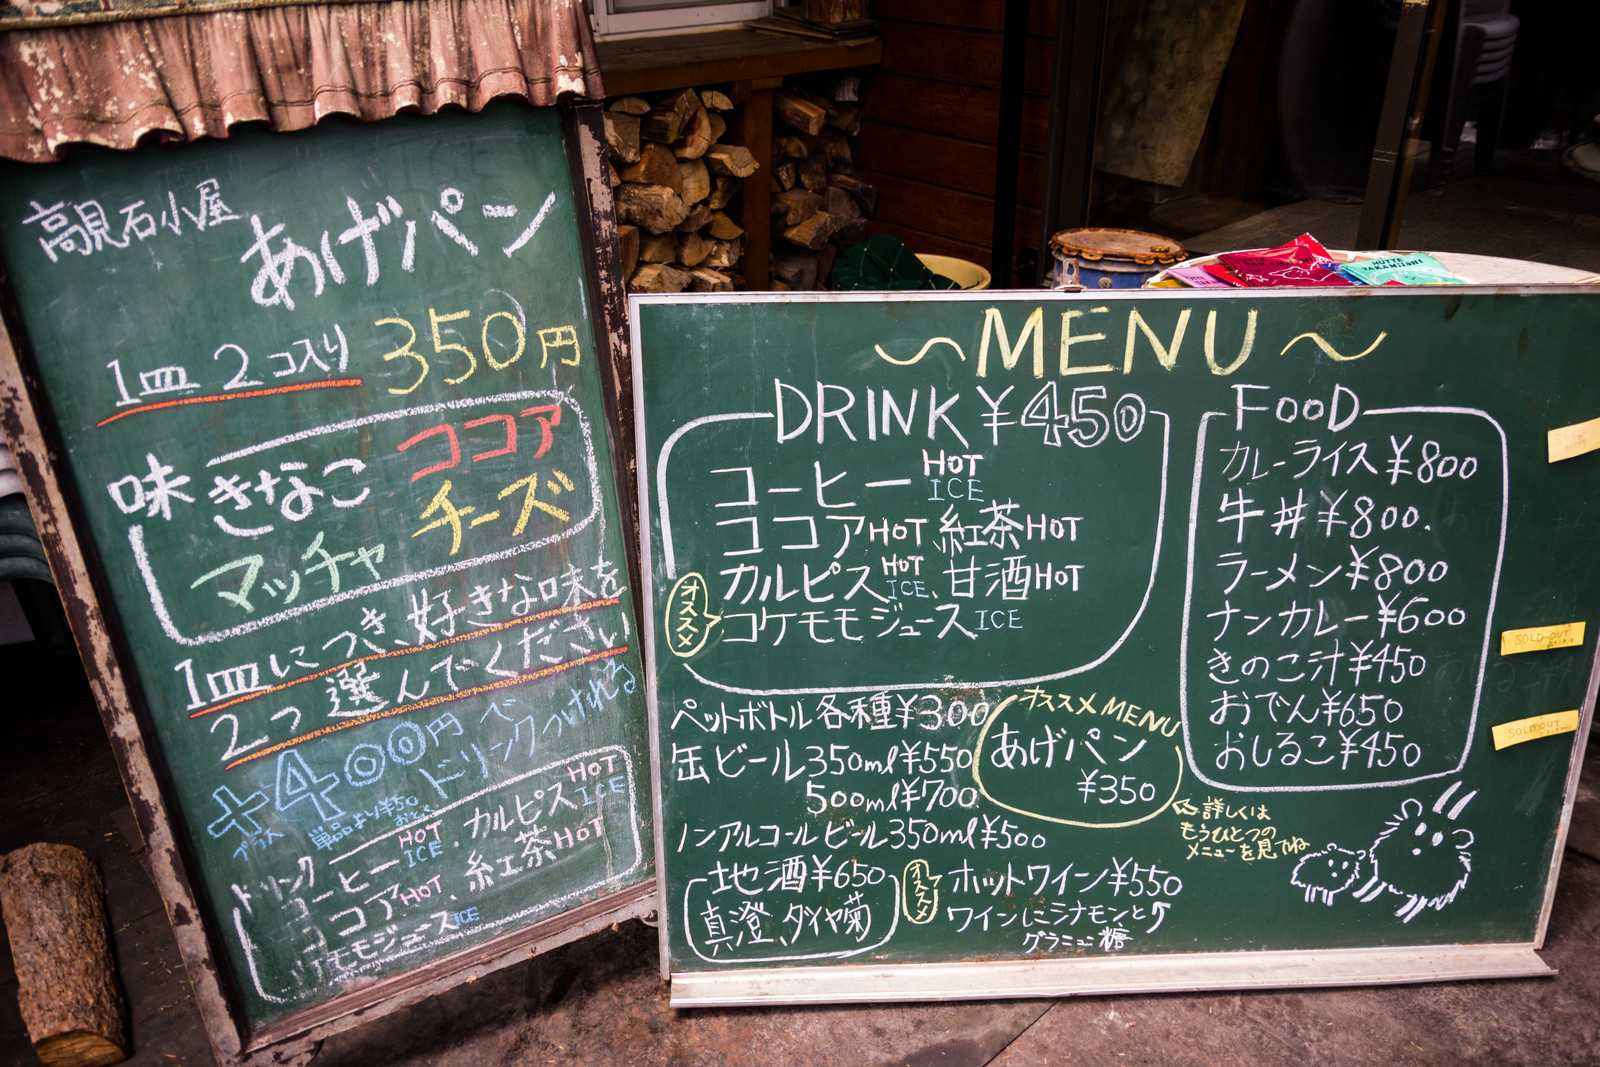 高見石小屋
あげパン
1皿 2コ入り 350円
味 きなこ ココア
マッチャ チーズ
1皿につき、好きな味を
2つ選んでください
+400円で
プラス 単品より¥50 おとく
ドリンクつけれる
ドリンク
コーヒー HOT ICE. カルピス HOT ICE
ココア HOT、紅茶 HOT
コケモモジュース ICE
～MENU～
DRINK ¥450
コーヒー HOT ICE
ココア HOT、紅茶 HOT
カルピス HOT ICE、甘酒 HOT
オススメ コケモモジュース ICE
ペットボトル各種¥300
缶ビール350ml¥550
500ml¥700
ノンアルコールビール350ml¥500
地酒¥650
真澄、ダイヤ菊
オススメMENU
あげパン
¥350
詳しくは
もうひとつの
メニューを見てね
オススメ ホットワイン¥550
ワインにシナモンと
グラニュー糖
FOOD
カレーライス¥800
牛丼¥800.
ラーメン¥800
ナンカレー¥600
きのこ汁¥450
おでん¥650
おしるこ¥450
SOLD OUT
SOLD OUT
HUTTE
TAKAMIISHI